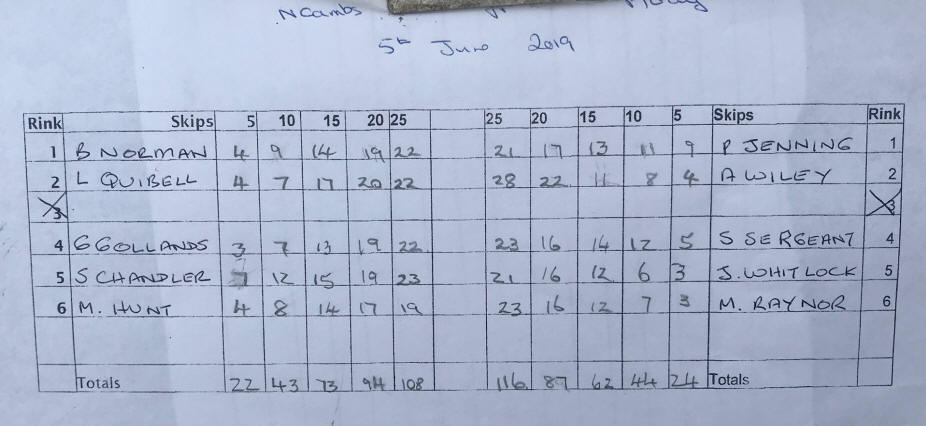 N Cambs
5th June 2019
Rink Skips 5 10 15 20 25 25 20 15 10 5 Skips Rink
1 B NORMAN 4 9 14 19 22 21 17 13 11 9 P JENNING 1
2 L QUIBELL 4 7 17 20 22 28 22 11 8 4 A WILEY 2
3 3
4 G GOLLANDS 3 7 13 19 22 23 16 14 12 5 S SERGEANT 4
5 S CHANDLER 7 12 15 19 23 21 16 12 6 3 J. WHITLOCK 5
6 M. HUNT 4 8 14 17 19 23 16 12 7 3 M. RAYNOR 6
Totals 22 43 73 94 108 116 87 62 44 24 Totals